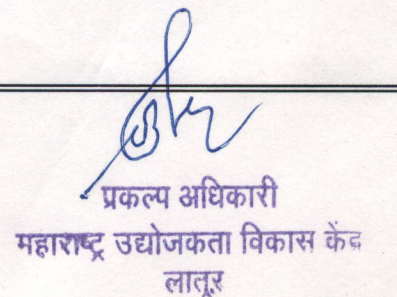 प्रकल्प अधिकारी
महाराष्ट्र उद्योजकता विकास केंद्र
लातूर